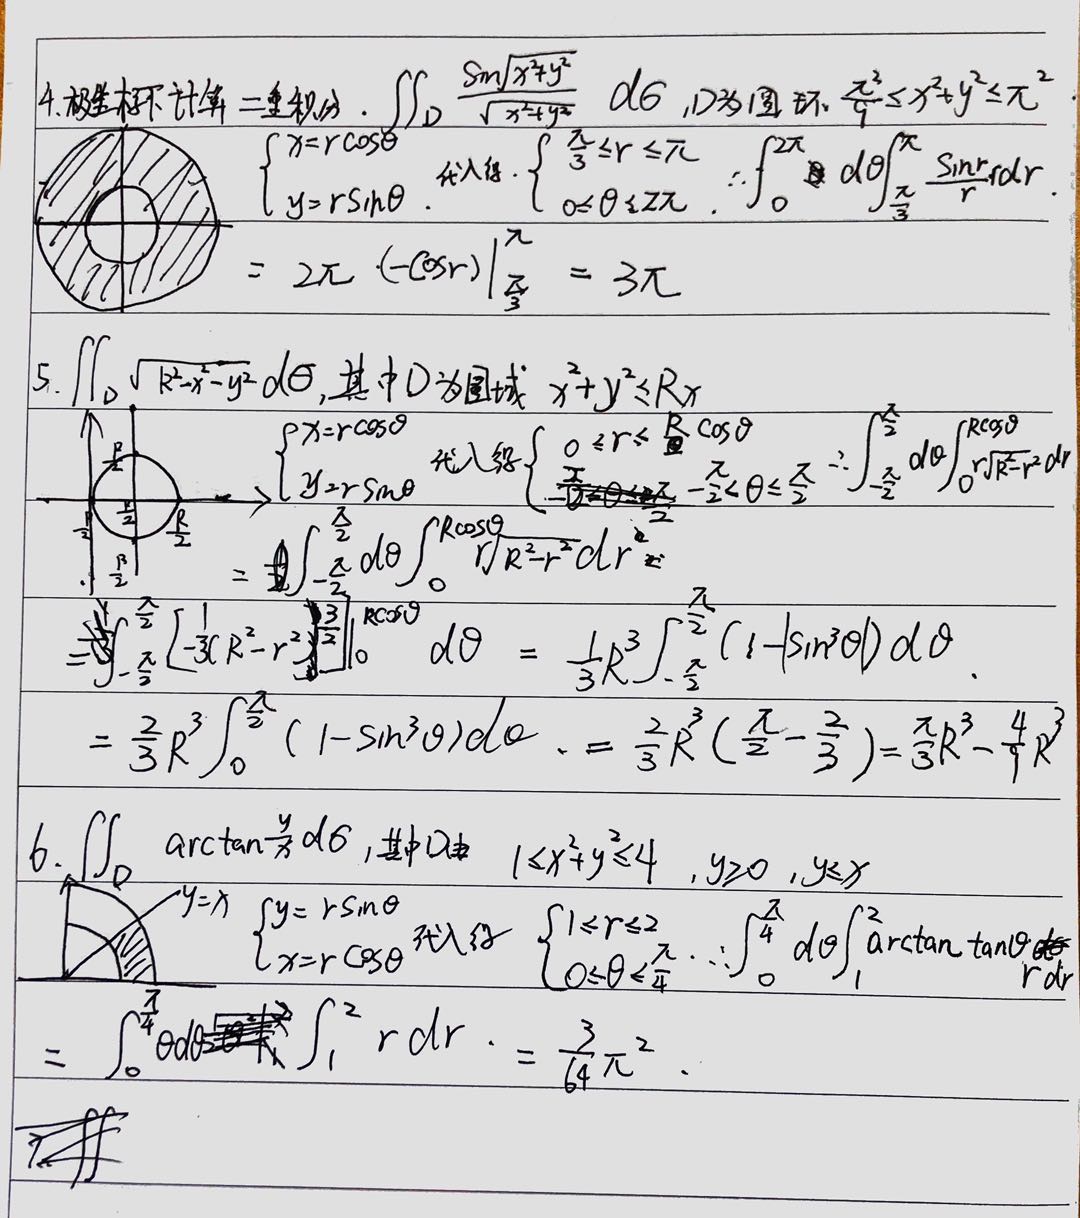 4.极坐标下计算二重积分. ∬_D sin√(x²+y²)/√(x²+y²) dσ ,D为圆环 π²/9≤x²+y²≤π²
{x=rcosθ y=rsinθ. 代入得. {π/3≤r≤π 0≤θ≤2π. ∴∫_0^{2π} dθ∫_{π/3}^{π} sinr/r rdr.
= 2π·(-cosr)|_{π/3}^{π} = 3π
5. ∬_D √(R²-x²-y²) dσ,其中D为圆域 x²+y²≤Rx
R/2 R/2 R/2 R/2
{x=rcosθ y=rsinθ 代入得{0≤r≤Rcosθ -π/2≤θ≤π/2 ∴∫_{-π/2}^{π/2} dθ∫_0^{Rcosθ} r√(R²-r²) dr
= ∫_{-π/2}^{π/2} dθ∫_0^{Rcosθ} r√(R²-r²) dr
= ∫_{-π/2}^{π/2} [-1/3(R²-r²)^{3/2}]|_0^{Rcosθ} dθ = 1/3R³∫_{-π/2}^{π/2} (1-|sin³θ|)dθ.
= 2/3R³∫_0^{π/2} (1-sin³θ)dθ. = 2/3R³(π/2-2/3)=π/3R³-4/9R³
6. ∬_D arctan y/x dσ ,其中D由 1≤x²+y²≤4 ,y≥0 ,y≤x
y=x {y=rsinθ x=rcosθ 代入得 {1≤r≤2 0≤θ≤π/4 ∴∫_0^{π/4} dθ∫_1^2 arctan tanθ r dr
= ∫_0^{π/4} θdθ ∫_1^2 r dr. = 3/64 π².